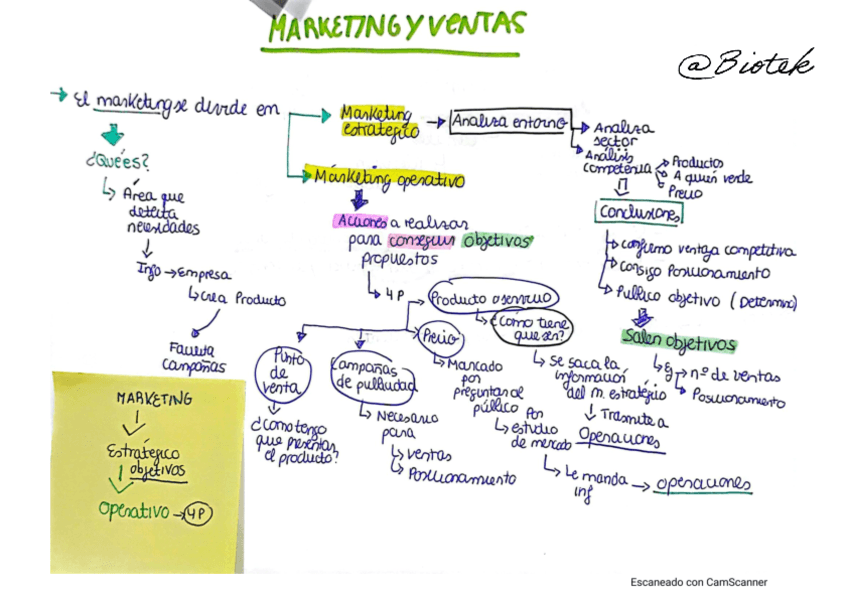 MARKETING Y VENTAS
@Biotek
→ El marketing se divide en
¿Qué es?
Área que
detecta
necesidades
Info → Empresa
Crea Producto
Facilita
campañas
Marketing
estratégico
Analiza entorno
Analiza
sector
Análisis
competencia
Productos
A quién vende
Precio
Conclusiones
Confirmo ventaja competitiva
Consigo Posicionamiento
Publico objetivo (Determino)
Salen objetivos
Ej → nº de ventas
Posicionamiento
Marketing operativo
Acciones a realizar
para conseguir objetivos
propuestos
4P
Producto o servicio
¿Cómo tiene
que ser?
Se saca la
información
del m. estratégico
↓ Trasmite a
Operaciones
Precio
Marcado
por
preguntar al
público
Por
estudio
de mercado
Le manda → operaciones
inf
Campañas
de publicidad
Necesario
para
ventas
Posicionamiento
Punto
de
venta
¿Cómo tengo
que presentar
el producto?
MARKETING
Estratégico
objetivos
Operativo → 4P
Escaneado con CamScanner